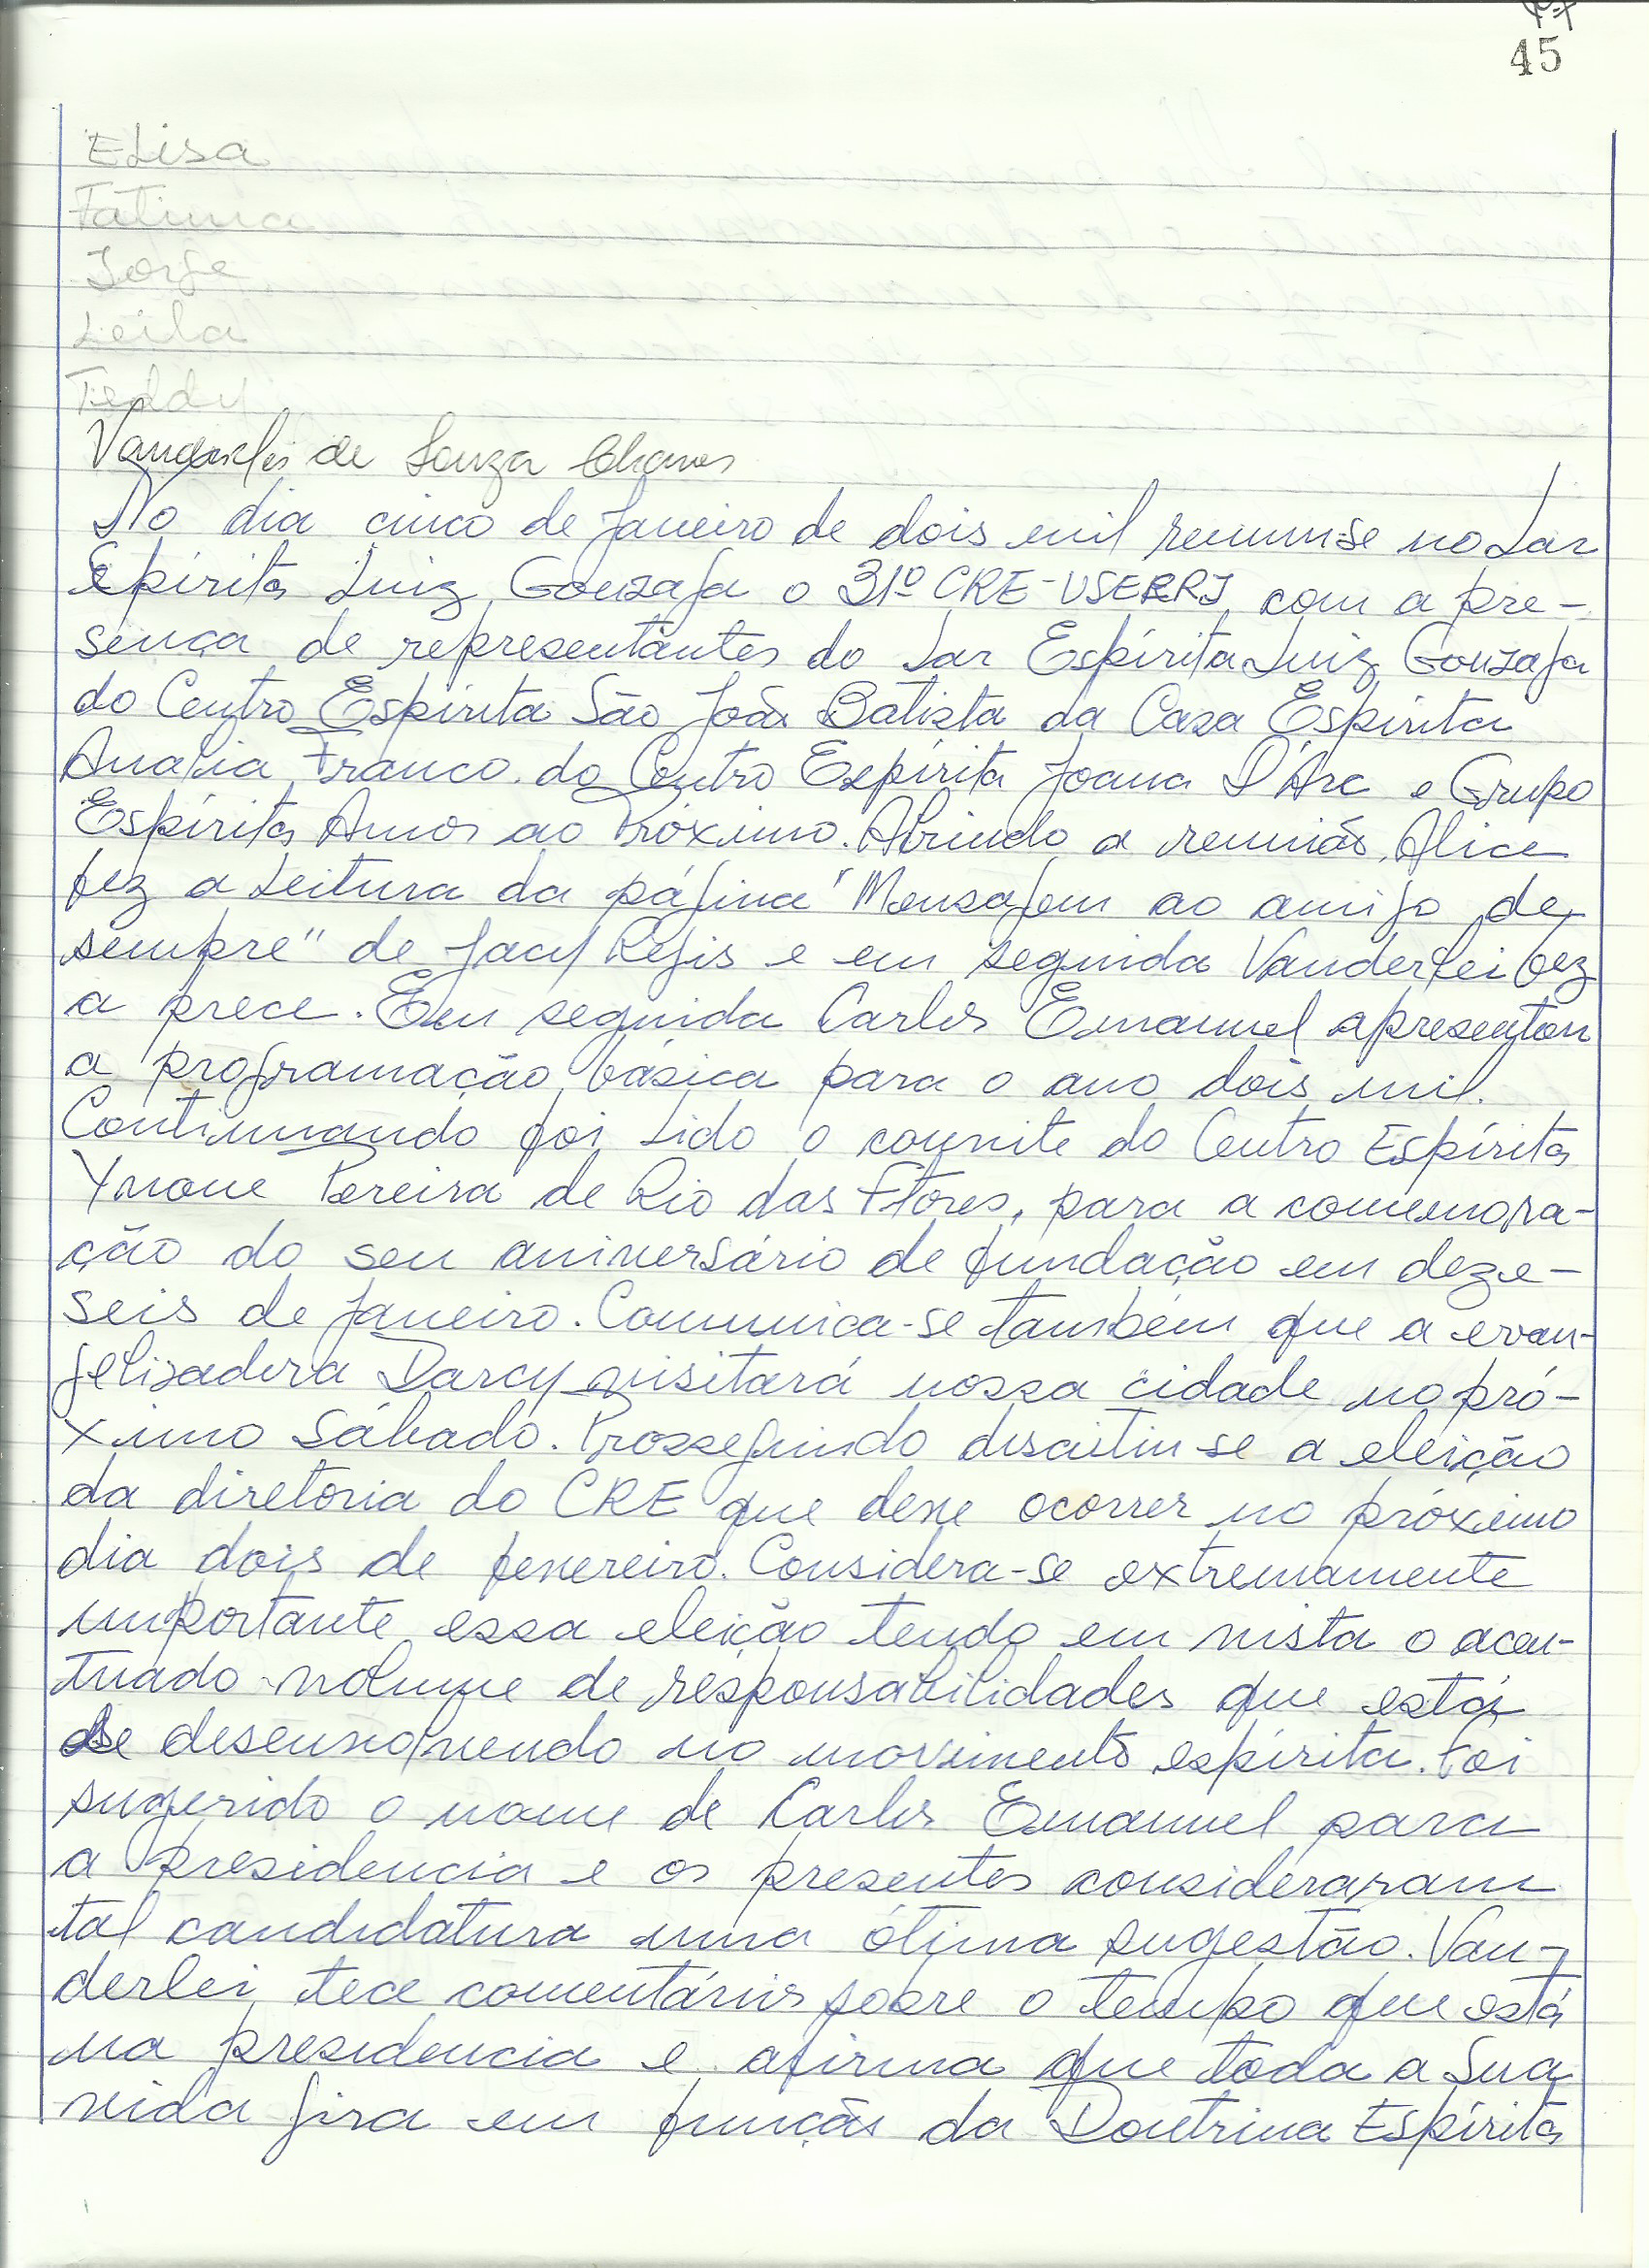 45
Elisa
Fatima
Jorge
Leila
Teddy
Vanderlei de Souza Chaves
No dia cinco de janeiro de dois mil reuniu-se no Lar
Espírita Luiz Gonzaga o 31º CRE-USEERJ, com a pre-
sença de representantes do Lar Espírita Luiz Gonzaga
do Centro Espírita São João Batista da Casa Espírita
Analia Franco. do Centro Espírita Joana D'Arc e Grupo
Espírita Amor ao Próximo. Abrindo a reunião, Alice
fez a leitura da página "Mensagem ao amigo de
sempre" de Jacy Regis e em seguida Vanderlei fez
a prece. Em seguida Carlos Emanuel apresentou
a programação básica para o ano dois mil.
Continuando foi lido o convite do Centro Espírita
Yvone Pereira de Rio das Flores, para a comemora-
ção do seu aniversário de fundação em deze-
seis de janeiro. Comunica-se também que a evan-
gelizadora Darcy visitará nossa cidade no pró-
ximo sábado. Prosseguindo discutiu-se a eleição
da diretoria do CRE que deve ocorrer no próximo
dia dois de fevereiro. Considera-se extremamente
importante essa eleição tendo em vista o acen-
tuado volume de responsabilidades que está
se desenvolvendo no movimento espírita. Foi
sugerido o nome de Carlos Emanuel para
a presidencia e os presentes consideraram
tal candidatura uma ótima sugestão. Van-
derlei tece comentários sobre o tempo que está
na presidencia e afirma que toda a sua
vida gira em função da Doutrina Espírita